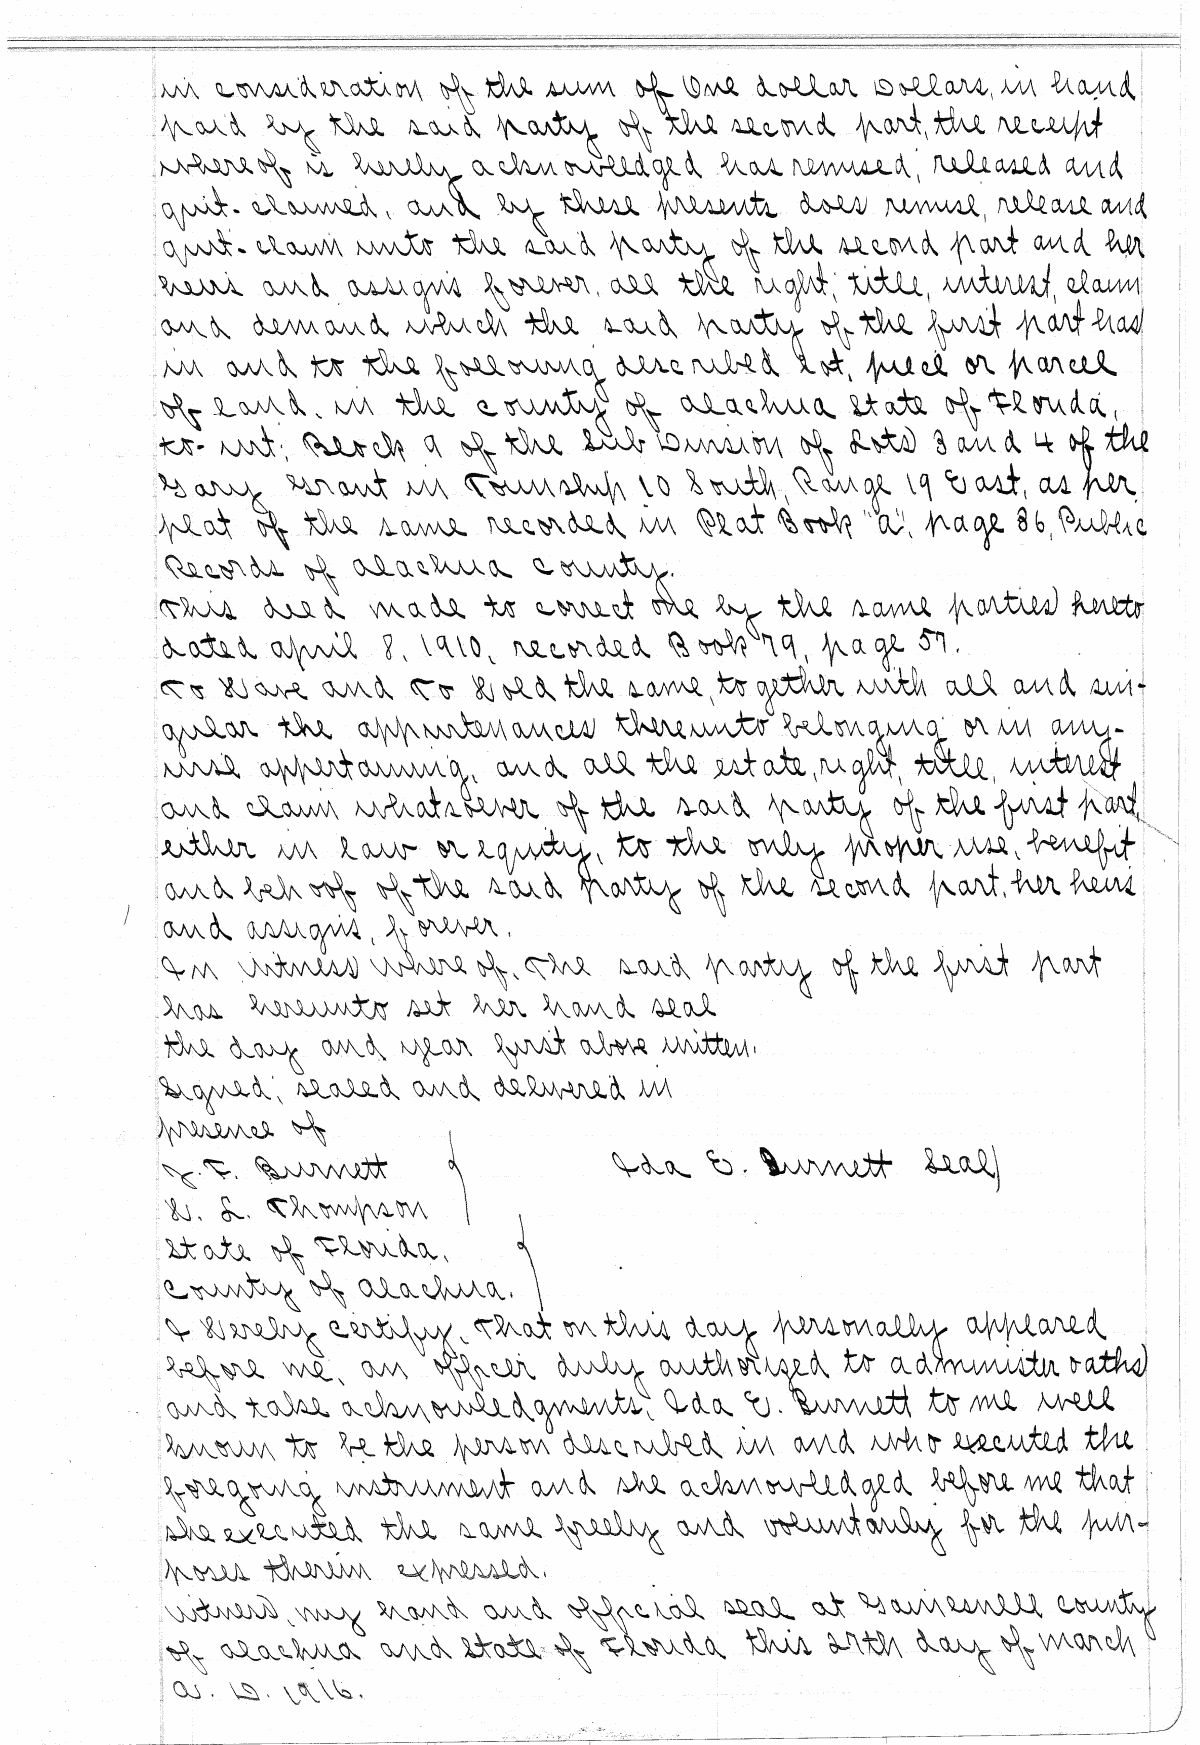 in consideration of the sum of One dollar Dollars, in hand
paid by the said party of the second part, the receipt
whereof is hereby acknowledged has remised, released and
quit-claimed, and by these presents does remise, release and
quit-claim unto the said party of the second part and her
heirs and assigns forever, all the right, title, interest, claim
and demand which the said party of the first part has
in and to the following described lot, piece or parcel
of land, in the county of Alachua State of Florida,
to-wit; Block 9 of the Sub Division of Lots 3 and 4 of the
Gary Grant in Township 10 South, Range 19 East, as per
plat of the same recorded in Plat Book "A", page 86, Public
Records of Alachua County.
This deed made to correct one by the same parties hereto
dated April 8, 1910, recorded Book 79, page 57.
To Have and To Hold the same, together with all and sin-
gular the appurtenances thereunto belonging or in any-
wise appertaining, and all the estate, right, title, interest
and claim whatsoever of the said party of the first part,
either in law or equity, to the only proper use, benefit
and behoof of the said party of the second part, her heirs
and assigns, forever.
In witness whereof, The said party of the first part
has hereunto set her hand seal
the day and year first above written.
Signed, sealed and delivered in
presence of
F. Burnett Ida E. Burnett Seal)
H. L. Thompson
State of Florida,
County of Alachua.
I Hereby certify, That on this day personally appeared
before me, an officer duly authorized to administer oaths
and take acknowledgments, Ida E. Burnett to me well
known to be the person described in and who executed the
foregoing instrument and she acknowledged before me that
she executed the same freely and voluntarily for the pur-
poses therein expressed.
Witness, my hand and official seal at Gainesville county
of Alachua and State of Florida this 27th day of March
A. D. 1916.